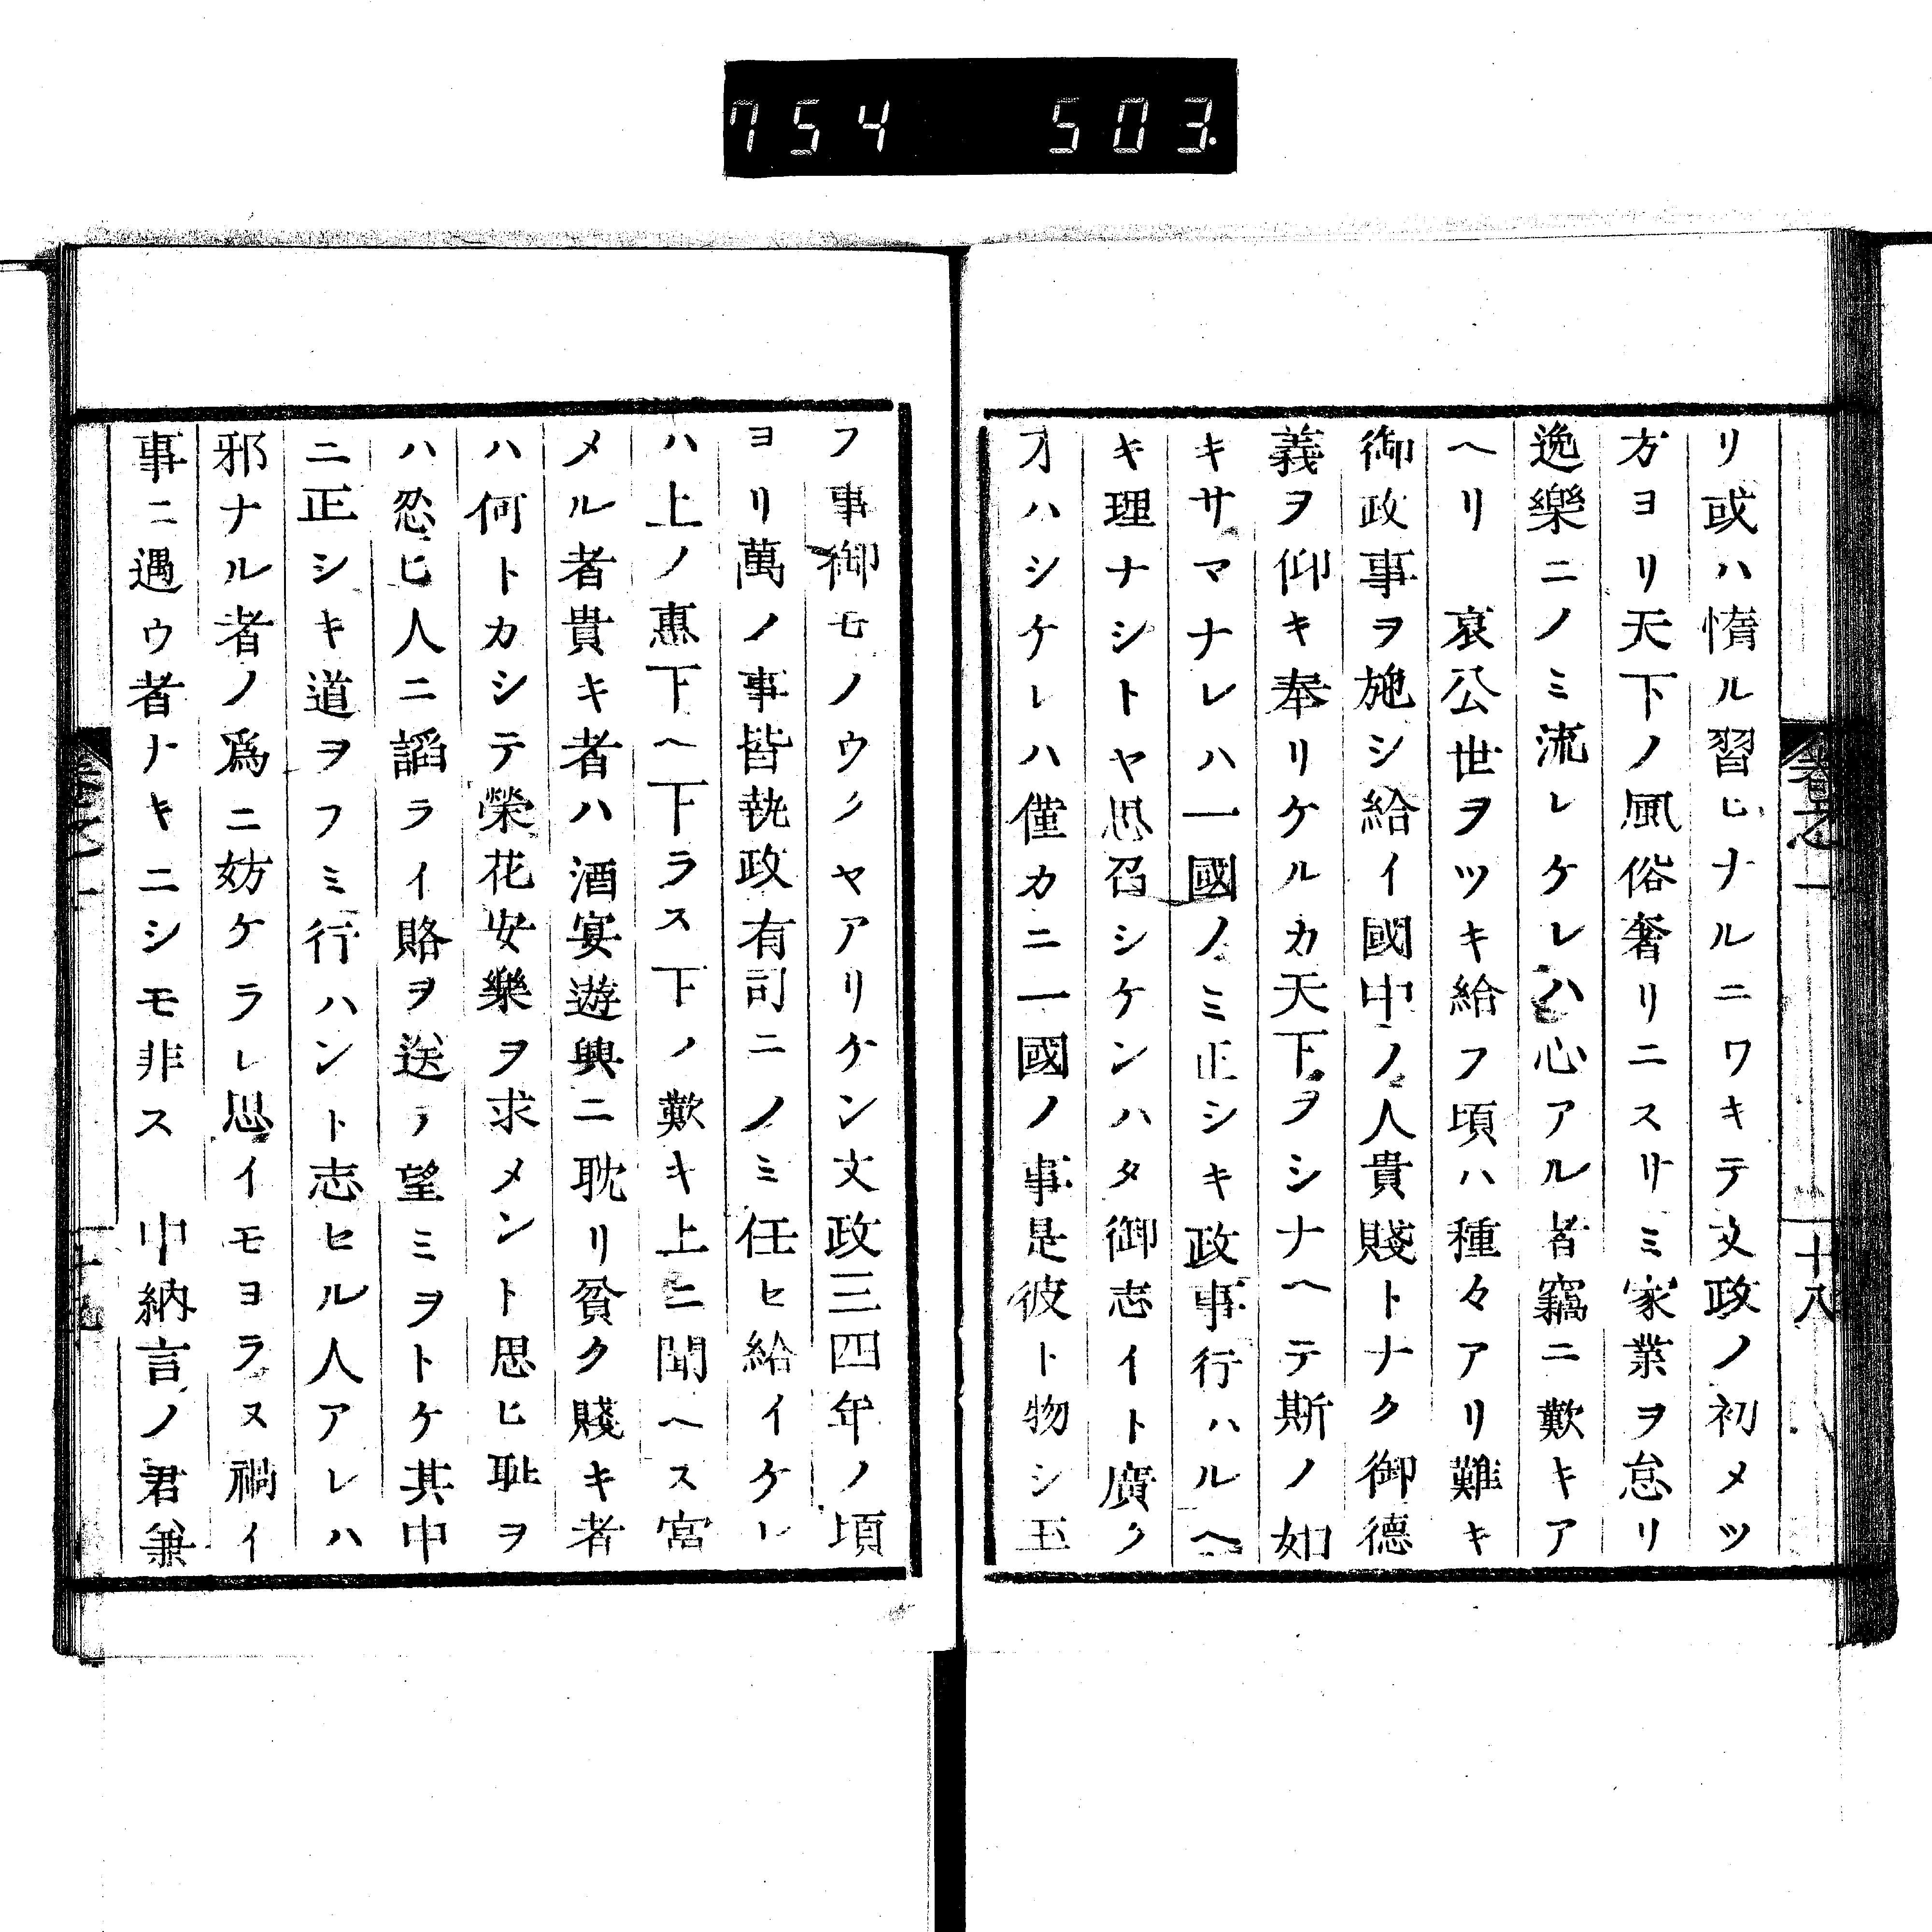 754 503
卷之一 十八
リ或ハ惰ル習ヒナルニワキテ文政ノ初メツ
方ヨリ天下ノ風俗奢リニスサミ家業ヲ怠リ
逸樂ニノミ流レケレハ心アル者竊ニ歎キア
ヘリ 哀公世ヲツキ給フ頃ハ種々アリ難キ
御政事ヲ施シ給イ國中ノ人貴賤トナク御德
義ヲ仰キ奉リケルカ天下ヲシナヘテ斯ノ如
キサマナレハ一國ノミ正シキ政事行ハルヘ
キ理ナシトヤ思召シケンハタ御志イト廣ク
オハシケレハ僅カニ一國ノ事是彼ト物シ玉
フ事御モノウクヤアリケン文政三四年ノ頃
ヨリ萬ノ事皆執政有司ニノミ任セ給イケレ
ハ上ノ惠下ヘ下ラス下ノ歎キ上ニ聞ヘス宮
メル者貴キ者ハ酒宴遊興ニ耽リ貧ク賤キ者
ハ何トカシテ榮花安樂ヲ求メント思ヒ耻ヲ
ハ忍ヒ人ニ謟ライ賂ヲ送ノ望ミヲトケ其中
ニ正シキ道ヲフミ行ハント志セル人アレハ
邪ナル者ノ爲ニ妨ケラレ思イモヨラヌ禍イ
事ニ遇ウ者ナキニシモ非ス 中納言ノ君兼